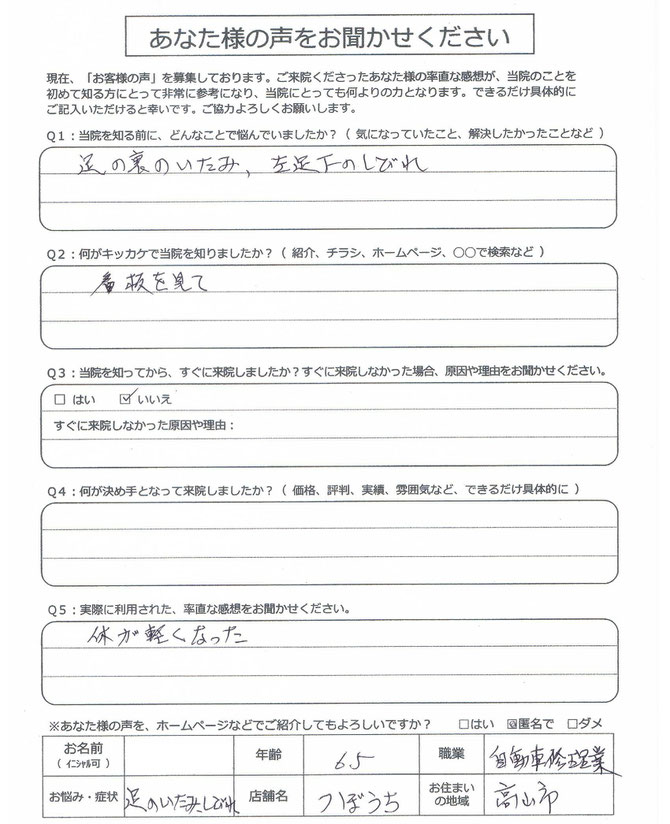 あなた様の声をお聞かせください
現在、「お客様の声」を募集しております。ご来院くださったあなた様の率直な感想が、当院のことを
初めて知る方にとって非常に参考になり、当院にとっても何よりの力となります。できるだけ具体的に
ご記入いただけると幸いです。ご協力よろしくお願いします。
Q1：当院を知る前に、どんなことで悩んでいましたか？（ 気になっていたこと、解決したかったことなど ）
足の裏のいたみ、左足下のしびれ
Q2：何がキッカケで当院を知りましたか？（ 紹介、チラシ、ホームページ、○○で検索など ）
看板を見て
Q3：当院を知ってから、すぐに来院しましたか？すぐに来院しなかった場合、原因や理由をお聞かせください。
□ はい ☑ いいえ
すぐに来院しなかった原因や理由：
Q4：何が決め手となって来院しましたか？（ 価格、評判、実績、雰囲気など、できるだけ具体的に ）
Q5：実際に利用された、率直な感想をお聞かせください。
体が軽くなった
※あなた様の声を、ホームページなどでご紹介してもよろしいですか？ □はい ☑匿名で □ダメ
お名前
（ｲﾆｼｬﾙ可）
年齢
65
職業
自動車修理業
お悩み・症状
足のいたみ、しびれ
店舗名
つぼうち
お住まい
の地域
高山市